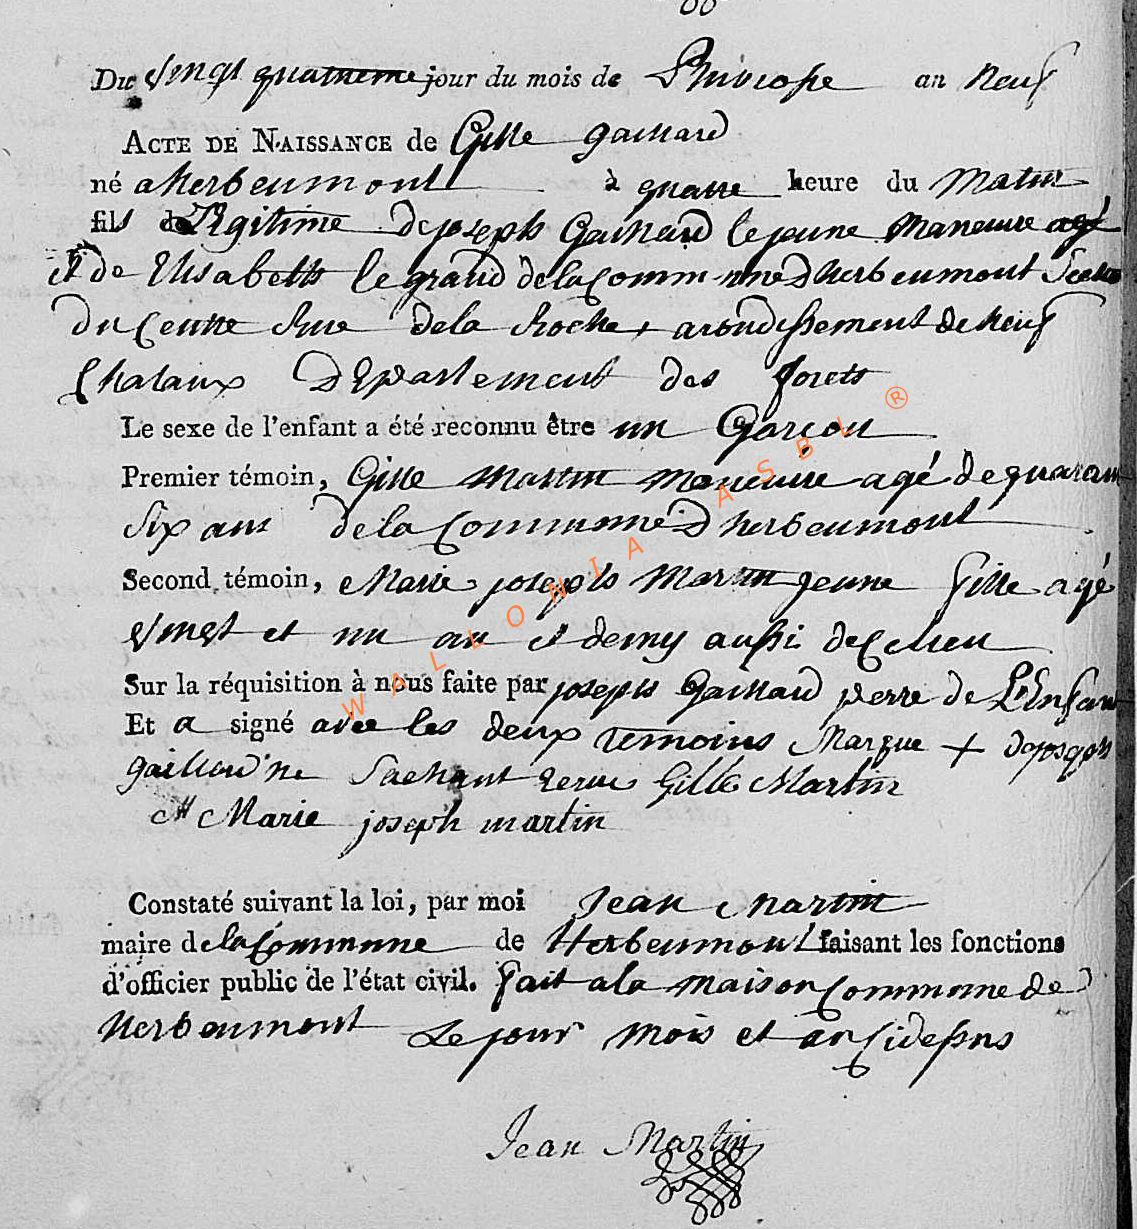 Du vingt quatrieme jour du mois de Pluviose an neuf
ACTE DE NAISSANCE de Gille gaillard
né a herbeumont à quatre heure du Matin
fils de Legitime de joseph Gaillard le jeune Maneuvre agé
et de Elisabeth le grand de la Commune D herbeumont
du Centre Rue de la Roche, arondissement de Neuf
Chataux Departement des forets
Le sexe de l'enfant a été reconnu être un Garçon
Premier témoin, Gille Martin Maneuvre agé de quarant
Six ans de la Commune D herbeumont
Second témoin, Marie joseph Martin jeune fille agé
vingt et un an et demy aussi de Ce lieu
Sur la réquisition à nous faite par joseph Gaillard perre de L'Enfant
Et a signé avec les deux temoins Marque + de joseph
gaillard ne Sachant Gille Martin
Marie joseph martin
Constaté suivant la loi, par moi Jean Martin
maire de la Commune de Herbeumont faisant les fonctions
d'officier public de l'état civil. fait a la maison Commune de
Herbeumont Le jour mois et an Cidessus
Jean Martin
WALLONIA ASBL ®